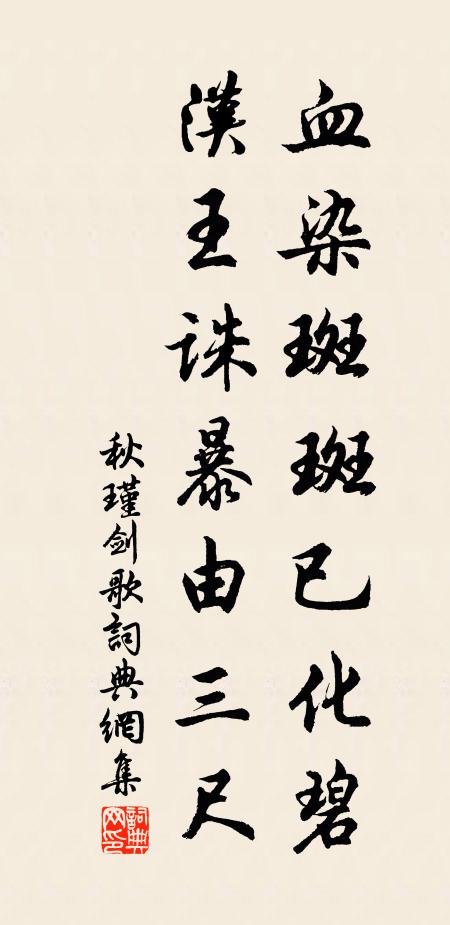 血染斑斑已化碧
漢王誅暴由三尺
秋瑾剑歌詞典網集
詞典网印